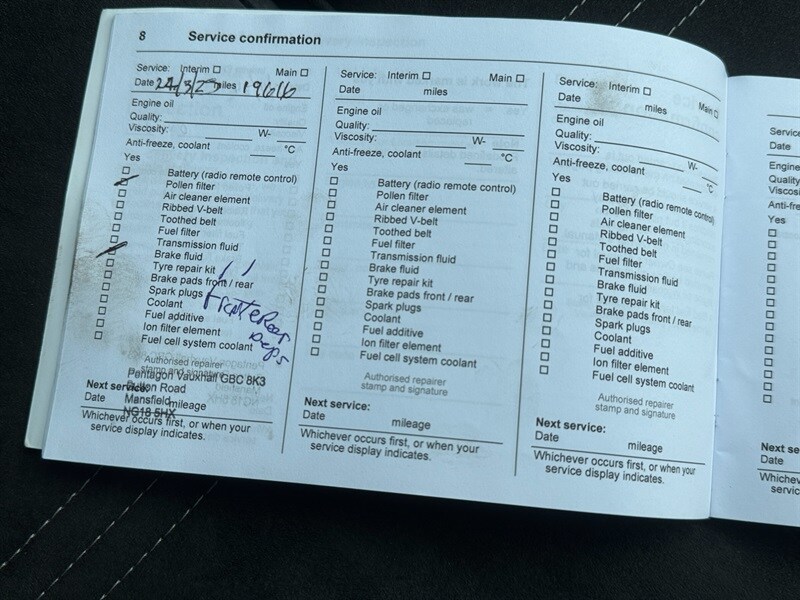 8 Service confirmation
Service: Interim Main
Date 24/3/23 miles 19616
Engine oil
Quality:
Viscosity: W-
Anti-freeze, coolant °C
Yes
Battery (radio remote control)
Pollen filter
Air cleaner element
Ribbed V-belt
Toothed belt
Fuel filter
Transmission fluid
Brake fluid
Tyre repair kit
Brake pads front / rear
Spark plugs
Coolant
Fuel additive
Ion filter element
Fuel cell system coolant
Front & Rear
Authorised repairer
stamp and signature
Pentagon Vauxhall GBC 8K3
Sutton Road
Mansfield
NG18 5HX
Next service:
Date mileage
Whichever occurs first, or when your
service display indicates.
Service: Interim Main
Date miles
Engine oil
Quality:
Viscosity: W-
Anti-freeze, coolant °C
Yes
Battery (radio remote control)
Pollen filter
Air cleaner element
Ribbed V-belt
Toothed belt
Fuel filter
Transmission fluid
Brake fluid
Tyre repair kit
Brake pads front / rear
Spark plugs
Coolant
Fuel additive
Ion filter element
Fuel cell system coolant
Authorised repairer
stamp and signature
Next service:
Date mileage
Whichever occurs first, or when your
service display indicates.
Service: Interim Main
Date miles
Engine oil
Quality:
Viscosity: W-
Anti-freeze, coolant °C
Yes
Battery (radio remote control)
Pollen filter
Air cleaner element
Ribbed V-belt
Toothed belt
Fuel filter
Transmission fluid
Brake fluid
Tyre repair kit
Brake pads front / rear
Spark plugs
Coolant
Fuel additive
Ion filter element
Fuel cell system coolant
Authorised repairer
stamp and signature
Next service:
Date mileage
Whichever occurs first, or when your
service display indicates.
Service
Date
Engine
Quality
Viscosi
Anti-fre
Yes
Next se
Date
Whichev
servic